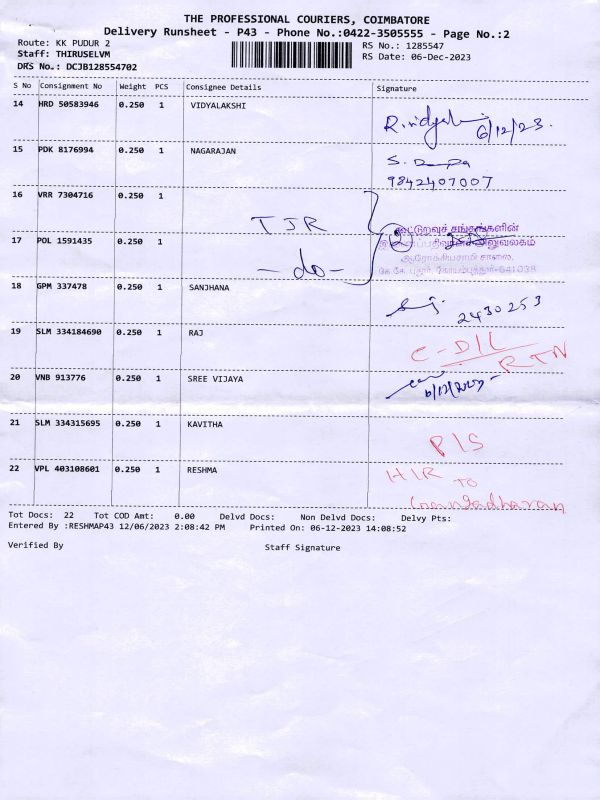 THE PROFESSIONAL COURIERS, COIMBATORE
Delivery Runsheet - P43 - Phone No.:0422-3505555 - Page No.:2
Route: KK PUDUR 2
RS No.: 1285547
Staff: THIRUSELVM
RS Date: 06-Dec-2023
DRS No.: DCJB128554702
S No Consignment No Weight PCS Consignee Details Signature
14 HRD 50583946 0.250 1 VIDYALAKSHI
R.vidyal 6/12/23.
15 PDK 8176994 0.250 1 NAGARAJAN
9842407007
16 VRR 7304716 0.250 1
TJR
17 POL 1591435 0.250 1
-do-
கூட்டுறவுச் சங்கங்களின்
ஆரோக்கியசாமி சாலை,
கே.கே. புதூர், கோயம்புத்தூர்-641038
18 GPM 337478 0.250 1 SANJHANA
2430253
19 SLM 334184690 0.250 1 RAJ
C-D/L
RTN
20 VNB 913776 0.250 1 SREE VIJAYA
6/12/2023
21 SLM 334315695 0.250 1 KAVITHA
P/S
22 VPL 403108601 0.250 1 RESHMA
H/R TO
Tot Docs: 22 Tot COD Amt: 0.00 Delvd Docs: Non Delvd Docs: Delvy Pts:
Entered By :RESHMAP43 12/06/2023 2:08:42 PM Printed On: 06-12-2023 14:08:52
Verified By Staff Signature